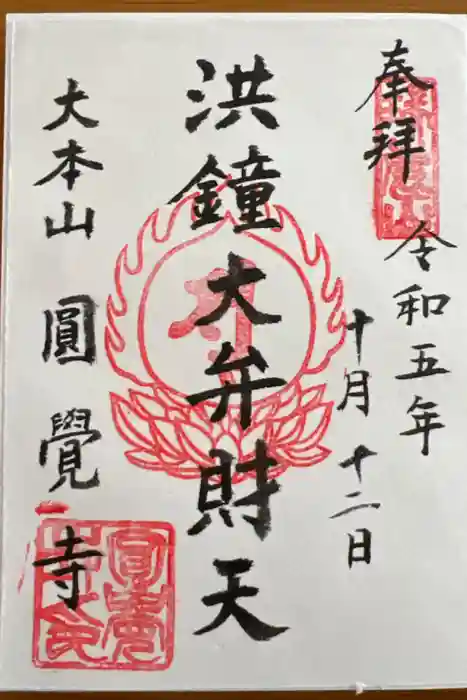 奉拜
令和五年
十月十二日
洪鐘大弁財天
大本山圓覺寺